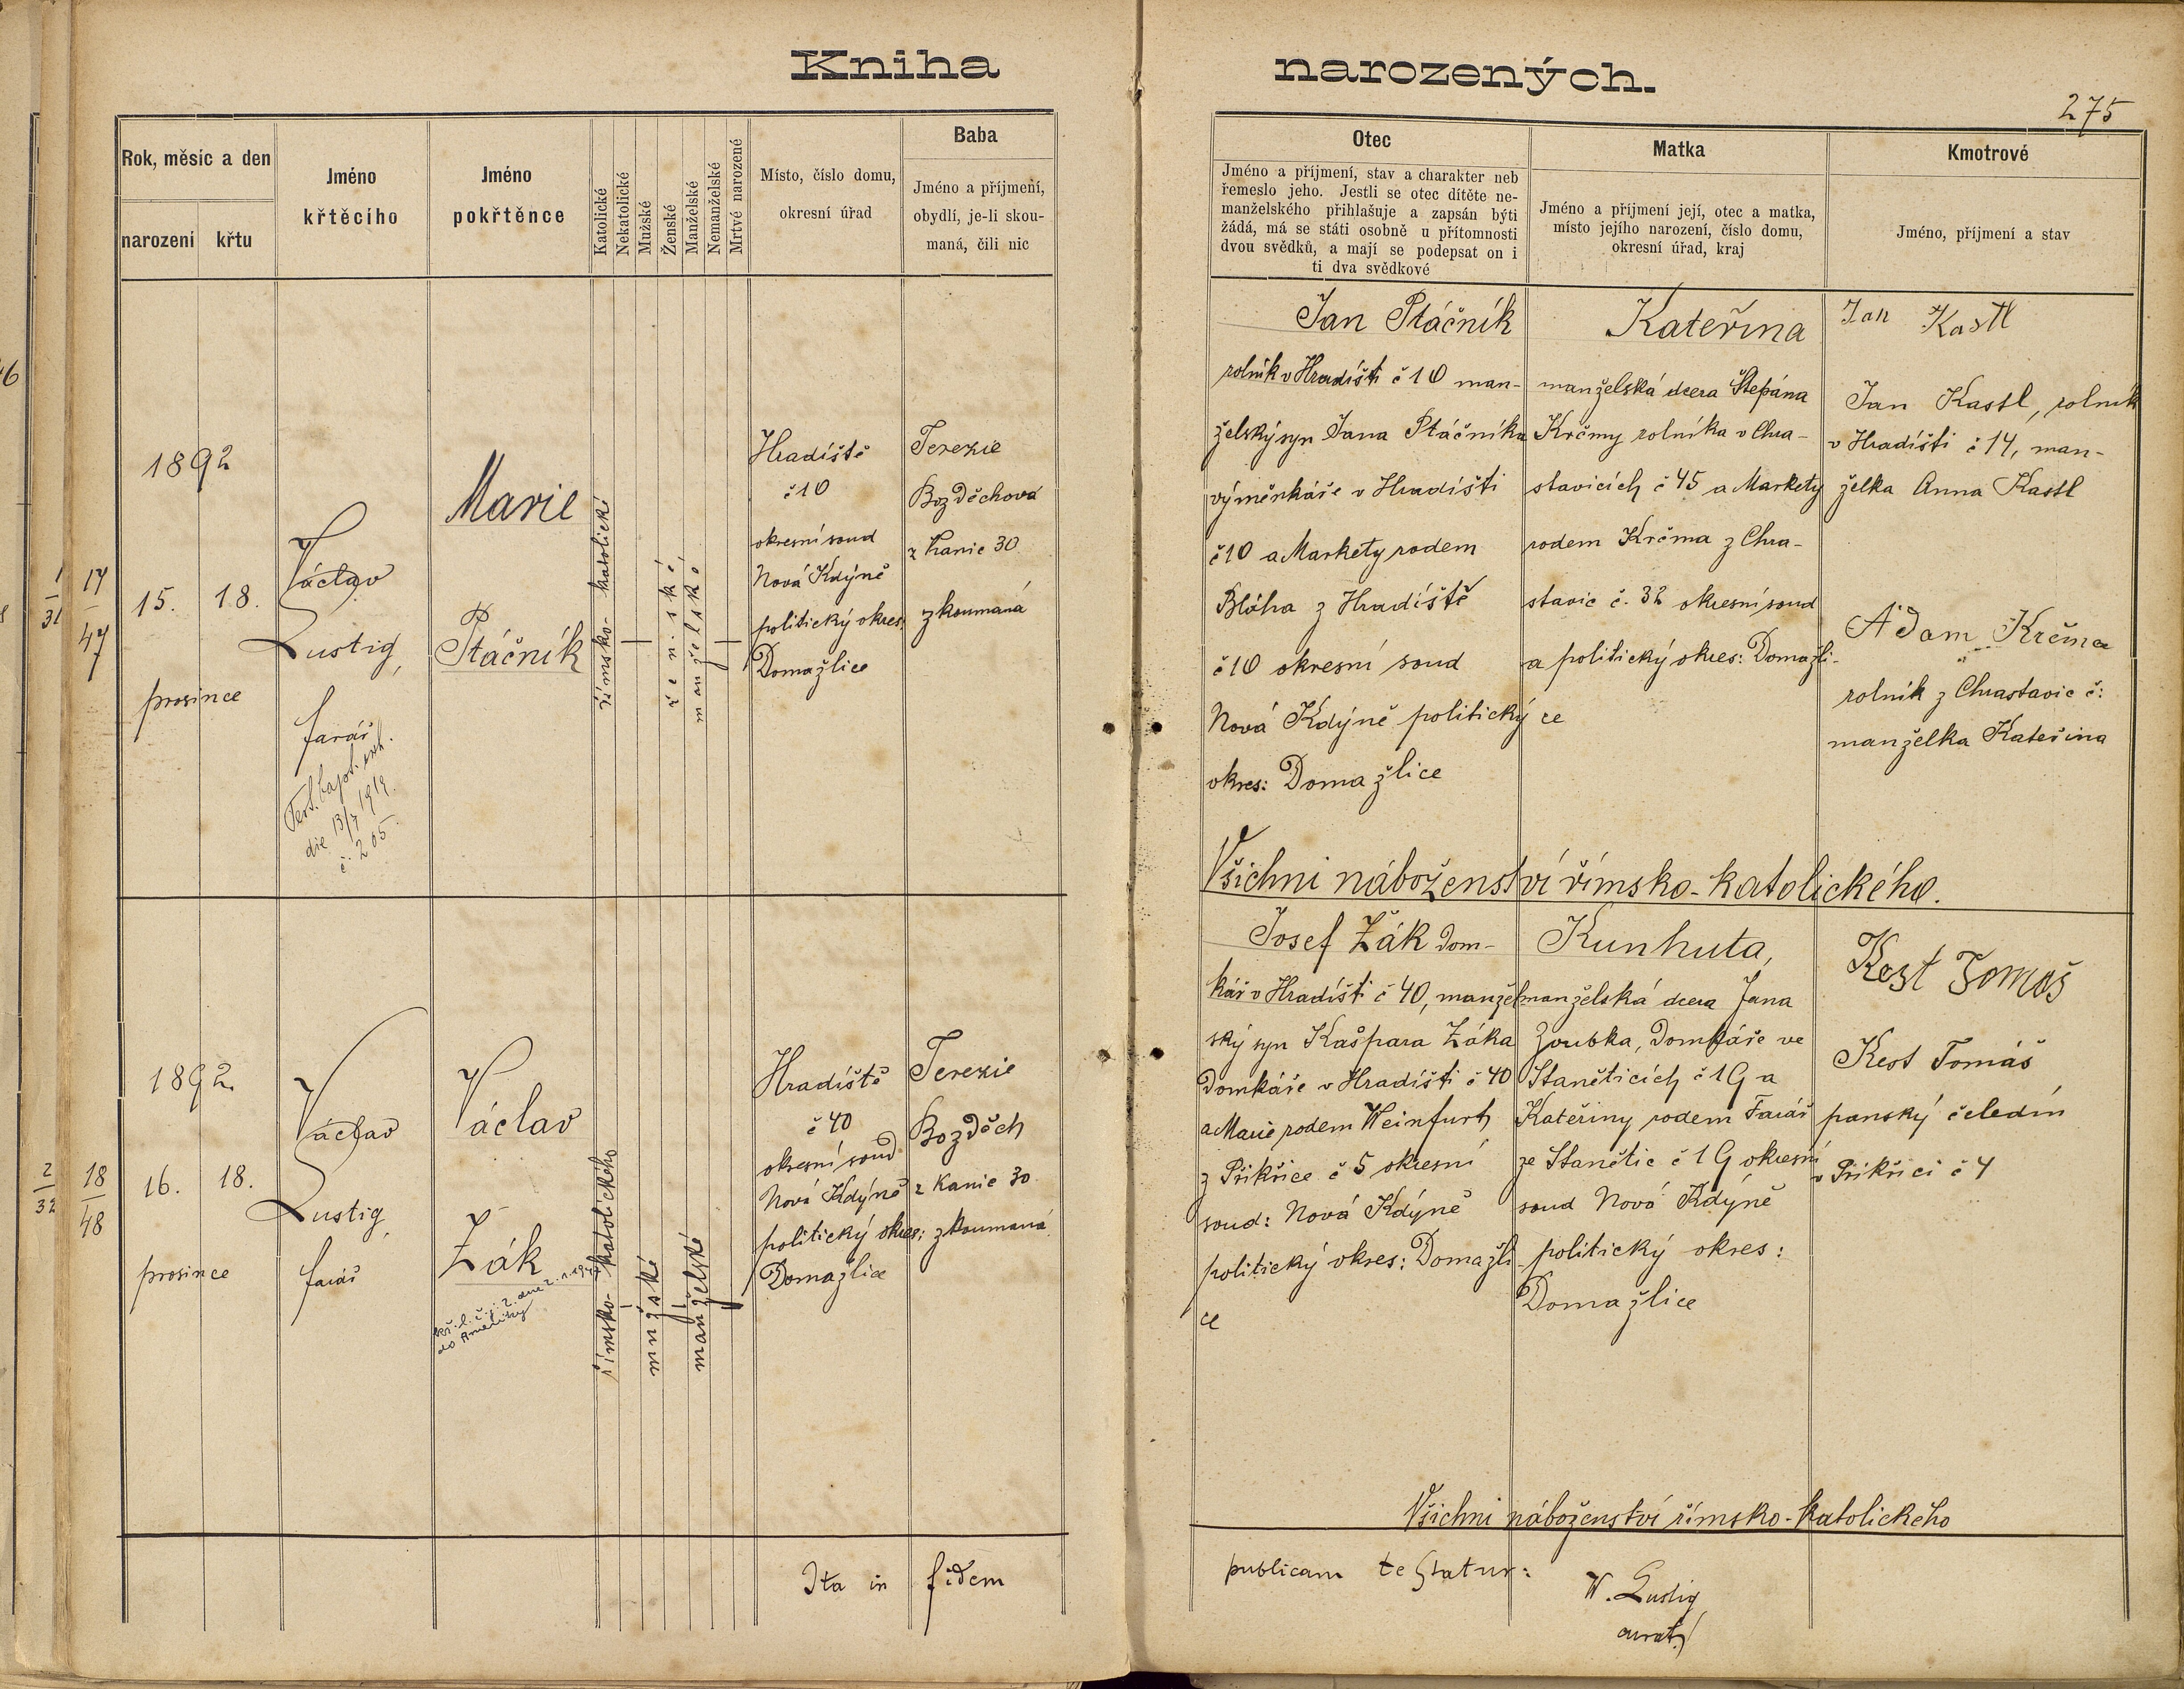 Kniha narozených.
275
Rok, měsíc a den
narození
křtu
Jméno
křtěcího
Jméno
pokřtěnce
Katolické
Nekatolické
Mužské
Ženské
Manželské
Nemanželské
Mrtvé narozené
Místo, číslo domu,
okresní úřad
Baba
Jméno a příjmení,
obydlí, je-li skou-
maná, čili nic
Otec
Jméno a příjmení, stav a charakter neb
řemeslo jeho. Jestli se otec dítěte ne-
manželského přihlašuje a zapsán býti
žádá, má se státi osobně u přítomnosti
dvou svědků, a mají se podepsat on i
ti dva svědkové
Matka
Jméno a příjmení její, otec a matka,
místo jejího narození, číslo domu,
okresní úřad, kraj
Kmotrové
Jméno, příjmení a stav
1
31
17
47
1892
15. 18.
prosince
Václav
Lustig,
farář
Test. bapt. ext.
die 13/7 1919.
č. 205.
Marie
Ptáčník
římsko-katolické
ženské
manželské
Hradiště
č 10
okresní soud
Nová Kdýně
politický okres:
Domažlice
Terezie
Bozděchová
z Kanic 30
zkoumaná
Jan Ptáčník
rolník v Hradišti č 10 man-
želský syn Jana Ptáčníka
výměnkáře v Hradišti
č 10 a Markety rodem
Bláha z Hradiště
č 10 okresní soud
Nová Kdýně politický
okres: Domažlice
Kateřina
manželská dcera Štěpána
Krčmy rolníka v Chra-
stavicích č 45 a Markety
rodem Krčma z Chra-
stavic č. 32 okresní soud
a politický okres: Domažli-
ce
Jan Kastl
Jan Kastl, rolník
v Hradišti č 14, man-
želka Anna Kastl
Adam Krčma
rolník z Chrastavic č:
manželka Kateřina
Všichni náboženství římsko-katolického.
2
32
18
48
1892.
16. 18.
prosince
Václav
Lustig,
farář
Václav
Žák
do Ameriky
římsko-katolického
mužské
manželské
Hradiště
č 40
okresní soud
Nová Kdýně
politický okres:
Domažlice
Terezie
Bozděch
z Kanic 30
zkoumaná
Josef Žák dom-
kář v Hradišti č 40, manžel
ský syn Kašpara Žáka
domkáře v Hradišti č 40
a Marie rodem Weinfurth
z Přikřice č 5 okresní
soud: Nová Kdýně
politický okres: Domažli-
ce
Kunhuta,
manželská dcera Jana
Zoubka, domkáře ve
Staněticích č 19 a
Kateřiny rodem Farář
ze Stanětic č 19 okresní
soud Nová Kdýně
politický okres:
Domažlice
Kest Tomáš
Kest Tomáš
panský čeledín
v Přikřici č 4
Všichni náboženství římsko-katolického
Ita in fidem publicam testatur:
W. Lustig